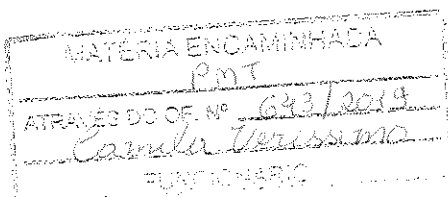 MATÉRIA ENCAMINHADA
PMT
ATRAVÉS DO OF. Nº 643/2019
Camila Verissimo
FUNCIONÁRIO